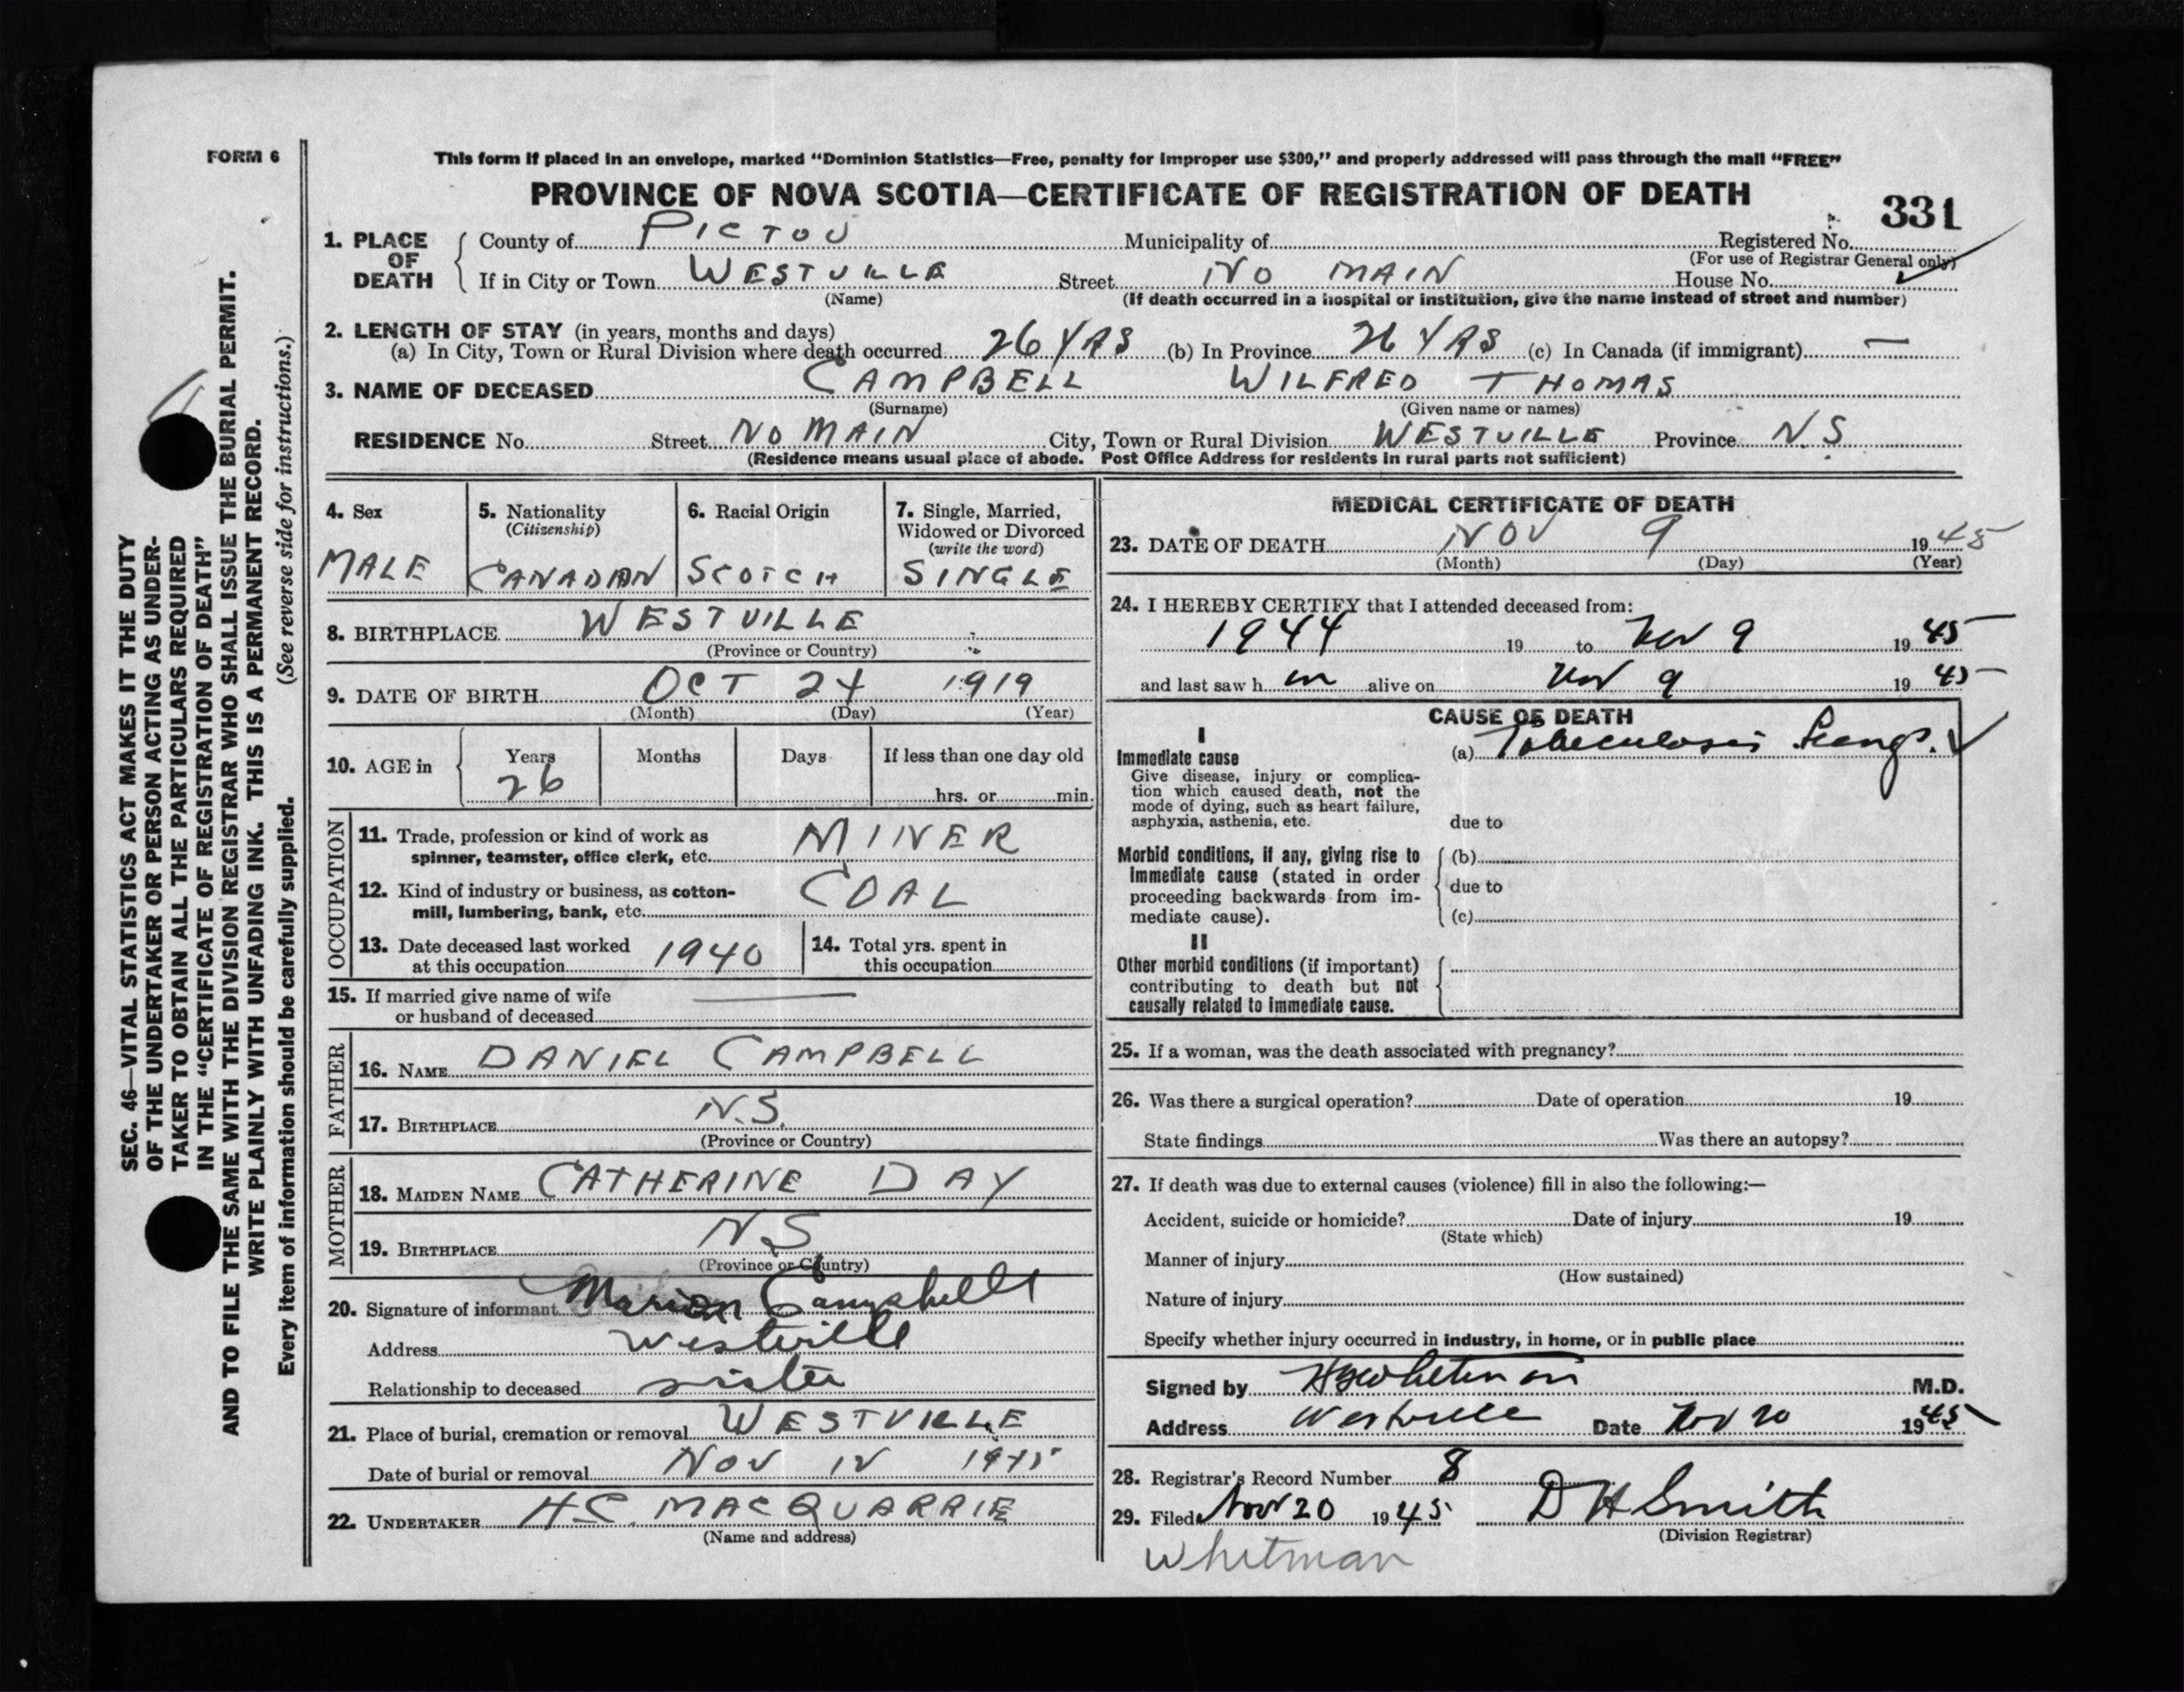 FORM 6
This form if placed in an envelope, marked "Dominion Statistics—Free, penalty for improper use $300," and properly addressed will pass through the mail "FREE"
PROVINCE OF NOVA SCOTIA—CERTIFICATE OF REGISTRATION OF DEATH
331
1. PLACE OF DEATH County of PICTOU Municipality of Registered No.
(For use of Registrar General only)
If in City or Town WESTVILLE Street NO MAIN House No.
(Name) (If death occurred in a hospital or institution, give the name instead of street and number)
2. LENGTH OF STAY (in years, months and days)
(a) In City, Town or Rural Division where death occurred 26 YRS (b) In Province 26 YRS (c) In Canada (if immigrant) —
3. NAME OF DECEASED CAMPBELL WILFRED THOMAS
(Surname) (Given name or names)
RESIDENCE No. Street NO MAIN City, Town or Rural Division WESTVILLE Province NS
(Residence means usual place of abode. Post Office Address for residents in rural parts not sufficient)
4. Sex
MALE
5. Nationality
(Citizenship)
CANADIAN
6. Racial Origin
SCOTCH
7. Single, Married,
Widowed or Divorced
(write the word)
SINGLE
8. BIRTHPLACE WESTVILLE
(Province or Country)
9. DATE OF BIRTH OCT 24 1919
(Month) (Day) (Year)
10. AGE in Years Months Days If less than one day old
26 hrs. or min.
OCCUPATION
11. Trade, profession or kind of work as
spinner, teamster, office clerk, etc. MINER
12. Kind of industry or business, as cotton-
mill, lumbering, bank, etc. COAL
13. Date deceased last worked
at this occupation 1940
14. Total yrs. spent in
this occupation
15. If married give name of wife
or husband of deceased —
FATHER
16. NAME DANIEL CAMPBELL
17. BIRTHPLACE N.S.
(Province or Country)
MOTHER
18. MAIDEN NAME CATHERINE DAY
19. BIRTHPLACE NS
(Province or Country)
20. Signature of informant Marion Campbell
Address Westville
Relationship to deceased sister
21. Place of burial, cremation or removal WESTVILLE
Date of burial or removal NOV 12 1945
22. UNDERTAKER H.S. MACQUARRIE
(Name and address)
MEDICAL CERTIFICATE OF DEATH
23. DATE OF DEATH NOV 9 1945
(Month) (Day) (Year)
24. I HEREBY CERTIFY that I attended deceased from:
1944 19 to Nov 9 1945
and last saw h im alive on Nov 9 1945
CAUSE OF DEATH
I
Immediate cause
Give disease, injury or complica-
tion which caused death, not the
mode of dying, such as heart failure,
asphyxia, asthenia, etc.
(a) Tuberculosis Lungs.
due to
Morbid conditions, if any, giving rise to
immediate cause (stated in order
proceeding backwards from im-
mediate cause).
(b)
due to
(c)
II
Other morbid conditions (if important)
contributing to death but not
causally related to immediate cause.
25. If a woman, was the death associated with pregnancy?
26. Was there a surgical operation? Date of operation 19
State findings Was there an autopsy?
27. If death was due to external causes (violence) fill in also the following:—
Accident, suicide or homicide? Date of injury 19
(State which)
Manner of injury
(How sustained)
Nature of injury
Specify whether injury occurred in industry, in home, or in public place
Signed by Whitman M.D.
Address Westville Date Nov 20 1945
28. Registrar's Record Number 8
29. Filed Nov 20 1945 D H Smith
(Division Registrar)
Whitman
SEC. 46—VITAL STATISTICS ACT MAKES IT THE DUTY
OF THE UNDERTAKER OR PERSON ACTING AS UNDER-
TAKER TO OBTAIN ALL THE PARTICULARS REQUIRED
IN THE "CERTIFICATE OF REGISTRATION OF DEATH"
AND TO FILE THE SAME WITH THE DIVISION REGISTRAR WHO SHALL ISSUE THE BURIAL PERMIT.
WRITE PLAINLY WITH UNFADING INK. THIS IS A PERMANENT RECORD.
Every item of information should be carefully supplied. (See reverse side for instructions.)